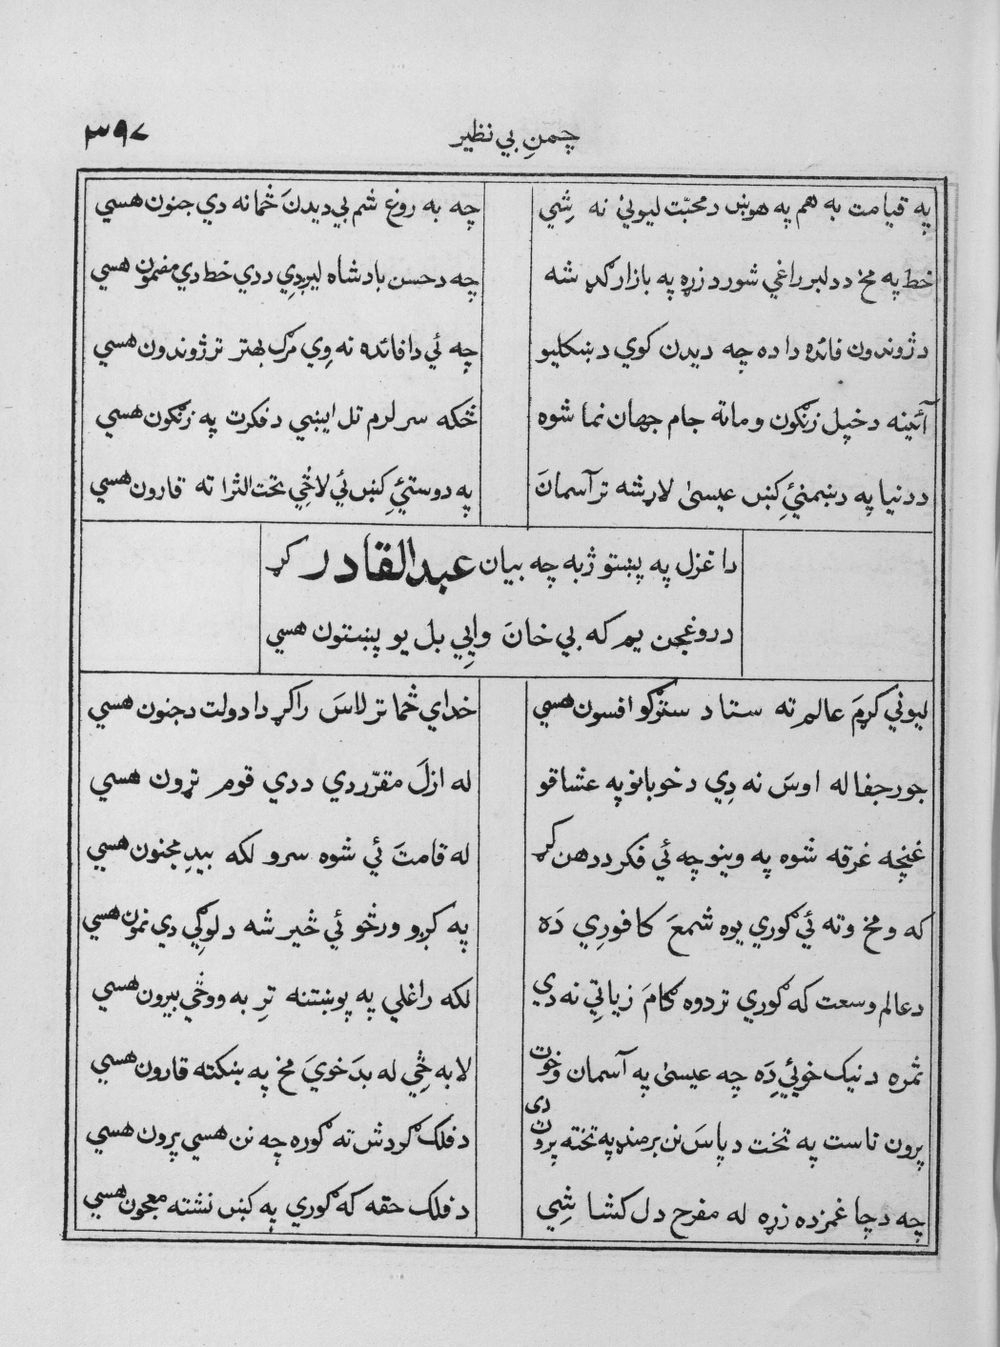 چمنِ بي نظير
٣٩٧
په قيامت به هم په هوښ د محبّت ليوني نه شِي
چه به روغ شم بي ديدنَ څما نه دي جنون هسي
خط په مخ د دلبر راغي شور د زړه په بازار ګډ شه
چه د حسن بادشاه ليږدِي د دي خط دي مضمون هسي
د ژوندون فائده دا ده چه ديدن کوي د ښکليو
چه ئي دا فائده نه وِي مرګ بهتر تر ژوندون هسي
آئينه د خپل زنګون و ما ته جام جهان نما شوه
ځکه سر لرم تل ايښي د فکرت په زنګون هسي
د دنيا په دښمنئِ کښ عيسىٰ لاړ شه تر آسمانَ
په دوستئِ کښ ئي لا ځِي تحت الثرا ته قارون هسي
دا غزل په پښتو ژبه چه بيان عبدالقادر کړ
دروغجن يم که بي خانَ وايِي بل يو پښتون هسي
ليوني کړمَ عالم ته ستا د سترګو افسون هسي
خداي څما تر لاسَ راکړ دا دولت د جنون هسي
جور جفا له اوسَ نه دِي د خوبانو په عشاقو
له ازلَ مقرّر دي د دي قوم تړون هسي
غنچه غرقه شوه په وينو چه ئي فکر د دهن کړ
له قامتَ ئي شوه سرو لکه بيدِ مجنون هسي
که و مخ وته ئي ګوري يوه شمعَ کافورِي دَه
په کږو ورځو ئي ځير شه د لوګي دي نمون هسي
د عالم وسعت که ګوري تر دوه ګامَ زياتِي نه دي
لکه راغلي په پوښتنه ترِ به ووځي بيرون هسي
ثمره د نيک خوئي دَه چه عيسىٰ په آسمان وخوت
لا به ځِي له بدَ خويَ مخ په ښکته قارون هسي
پرون ناست په تخت د پاسَ نن برمنډ په تخته پرون دی
د فلک ګردش ته ګوره چه نن هسي پرون هسي
چه د چا غمزده زړه له مفرح دل کشا شِي
د فلک حقه که ګوري په کښ نشته معجون هسي